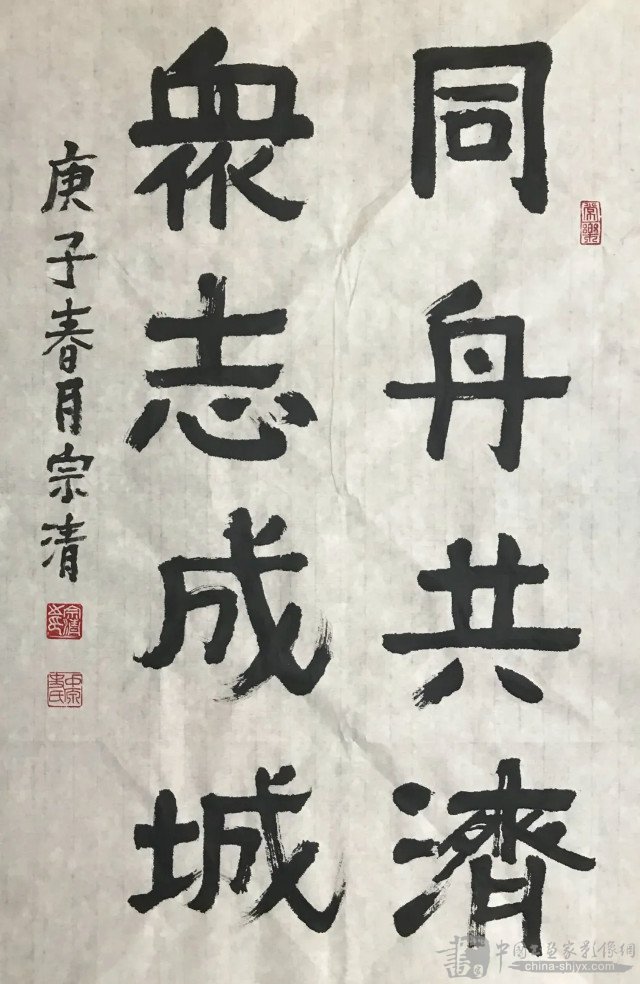 同舟共濟
衆志成城
庚子春月宗清
中國書畫家影像網
china-shjyx.com